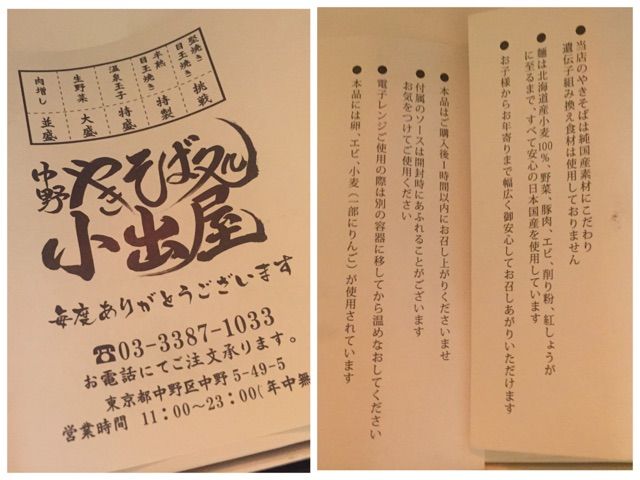 堅焼き
目玉焼き
半熟
目玉焼き
温泉玉子
生野菜
肉増し
挑戦
特製
特盛
大盛
並盛
中野
やきそば処
小出屋
毎度ありがとうございます
☎03-3387-1033
お電話にてご注文承ります。
東京都中野区中野5-49-5
営業時間 11:00～23:00(年中無
●当店のやきそばは純国産素材にこだわり
遺伝子組み換え食材は使用しておりません
●麺は北海道産小麦100％、野菜、豚肉、エビ、削り粉、紅しょうが
に至るまで、すべて安心の日本国産を使用しています。
●お子様からお年寄りまで幅広く御安心してお召しあがりいただけます
●本品はご購入後1時間以内にお召し上がりくださいませ
●付属のソースは開封時にあふれることがございます
お気をつけてご使用ください
●電子レンジご使用の際は別の容器に移してから温めなおしてください
●本品には卵、エビ、小麦（一部にりんご）が使用されています